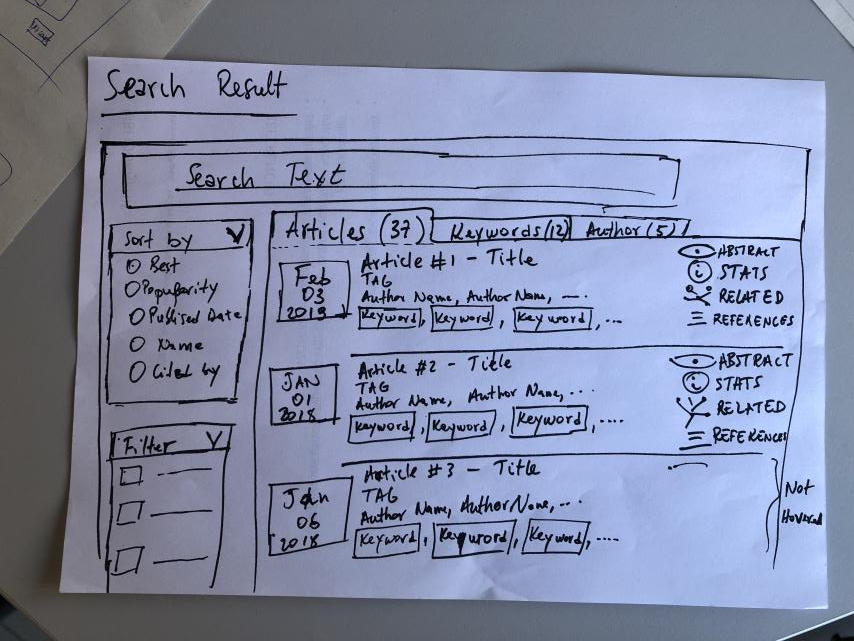 Search Result
Search Text
Sort by
Best
Popularity
Published Date
Name
Cited by
Filter
Articles (37)
Keywords (12)
Author (5)
Feb
03
2019
Article #1 - Title
TAG
Author Name, Author Name, ...
Keyword, Keyword, Keyword, ...
ABSTRACT
STATS
RELATED
REFERENCES
JAN
01
2018
Article #2 - Title
TAG
Author Name, Author Name, ...
Keyword, Keyword, Keyword, ....
ABSTRACT
STATS
RELATED
REFERENCES
Jan
06
2018
Article #3 - Title
TAG
Author Name, Author Name, ...
Keyword, Keyword, Keyword, ....
Not
Hovered